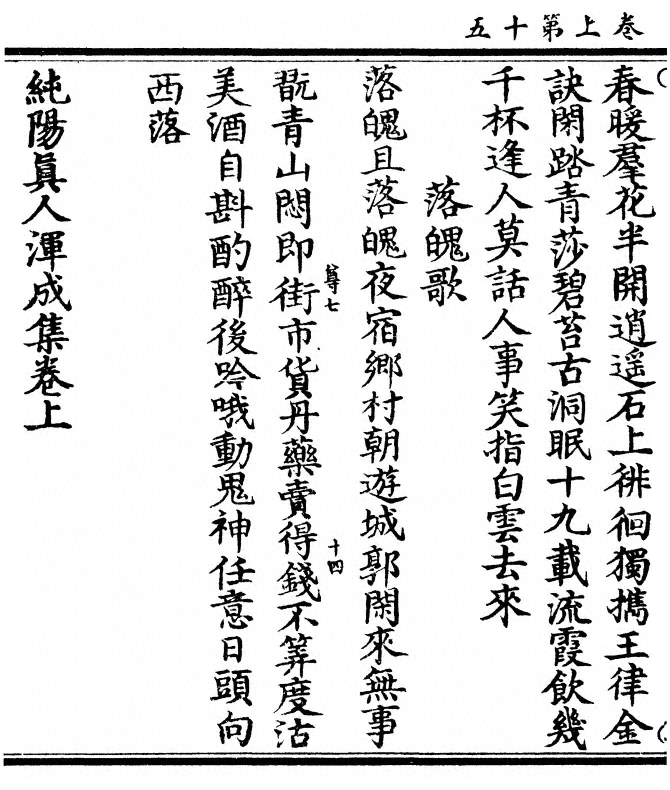 卷上第十五
春暖羣花半開逍遥石上徘徊獨攜王律金
訣閑踏青莎碧苔古洞眠十九載流霞飲幾
千杯逢人莫話人事笑指白雲去來
落魄歌
落魄且落魄夜宿鄉村朝遊城郭閑來無事
尊七
十四
翫青山悶即街市貨丹藥賣得錢不筭度沽
美酒自斟酌醉後吟哦動鬼神任意日頭向
西落
純陽眞人渾成集卷上